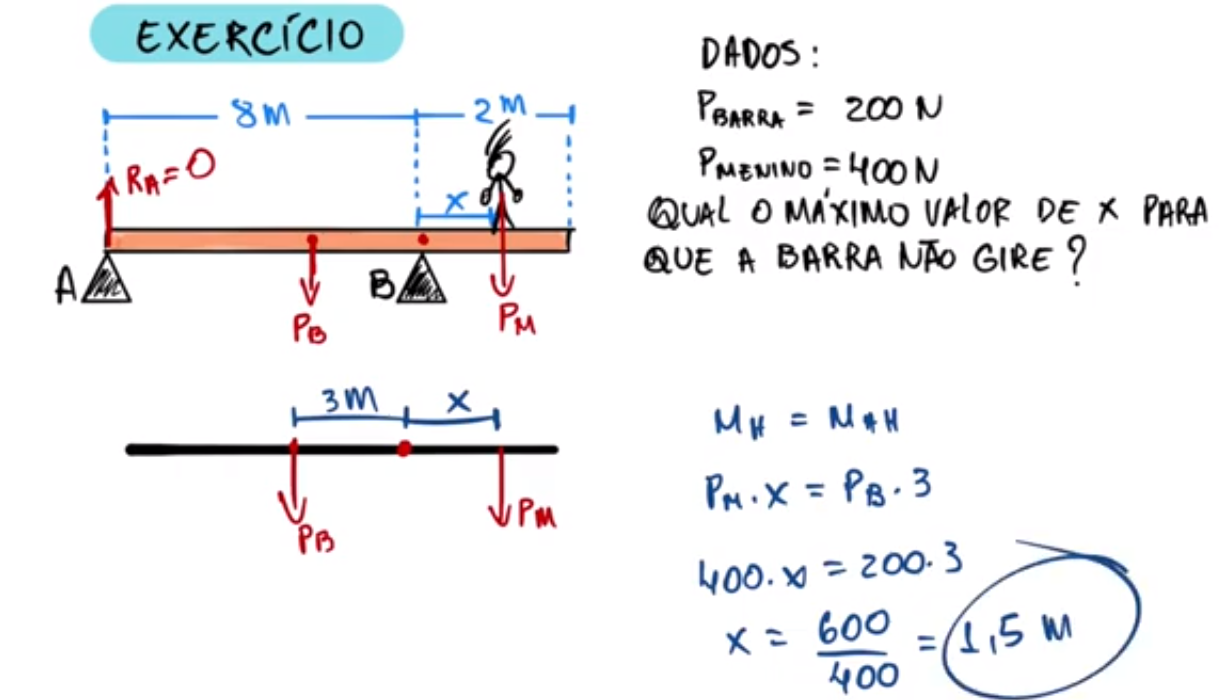 EXERCÍCIO
8M
2M
RA=0
x
A
B
PB
PM
3M
x
PB
PM
DADOS:
PBARRA = 200 N
PMENINO = 400 N
QUAL O MÁXIMO VALOR DE X PARA
QUE A BARRA NÃO GIRE?
MH = MAH
PM . x = PB . 3
400 . x = 200 . 3
x = 600/400 = 1,5 M